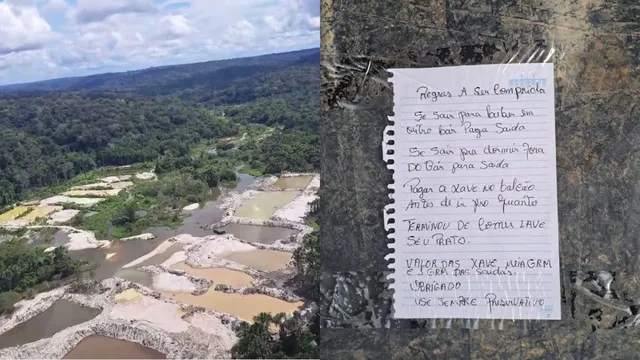 Regras A Ser Comprida
Se Sair para beber em
outro bar Paga Saida
Se Sair pra dormir fora
DO Bar para Saida
Pagar a xave no balcão
Antes de ir pro Quarto
TERMINOU DE Comer LAVE
SEU PRATO.
VALOR DAS XAVE MEIAGRM
E 1 GRM DAS Saidas
OBRIGADO
USE SEMPRE PRESERVATIVO